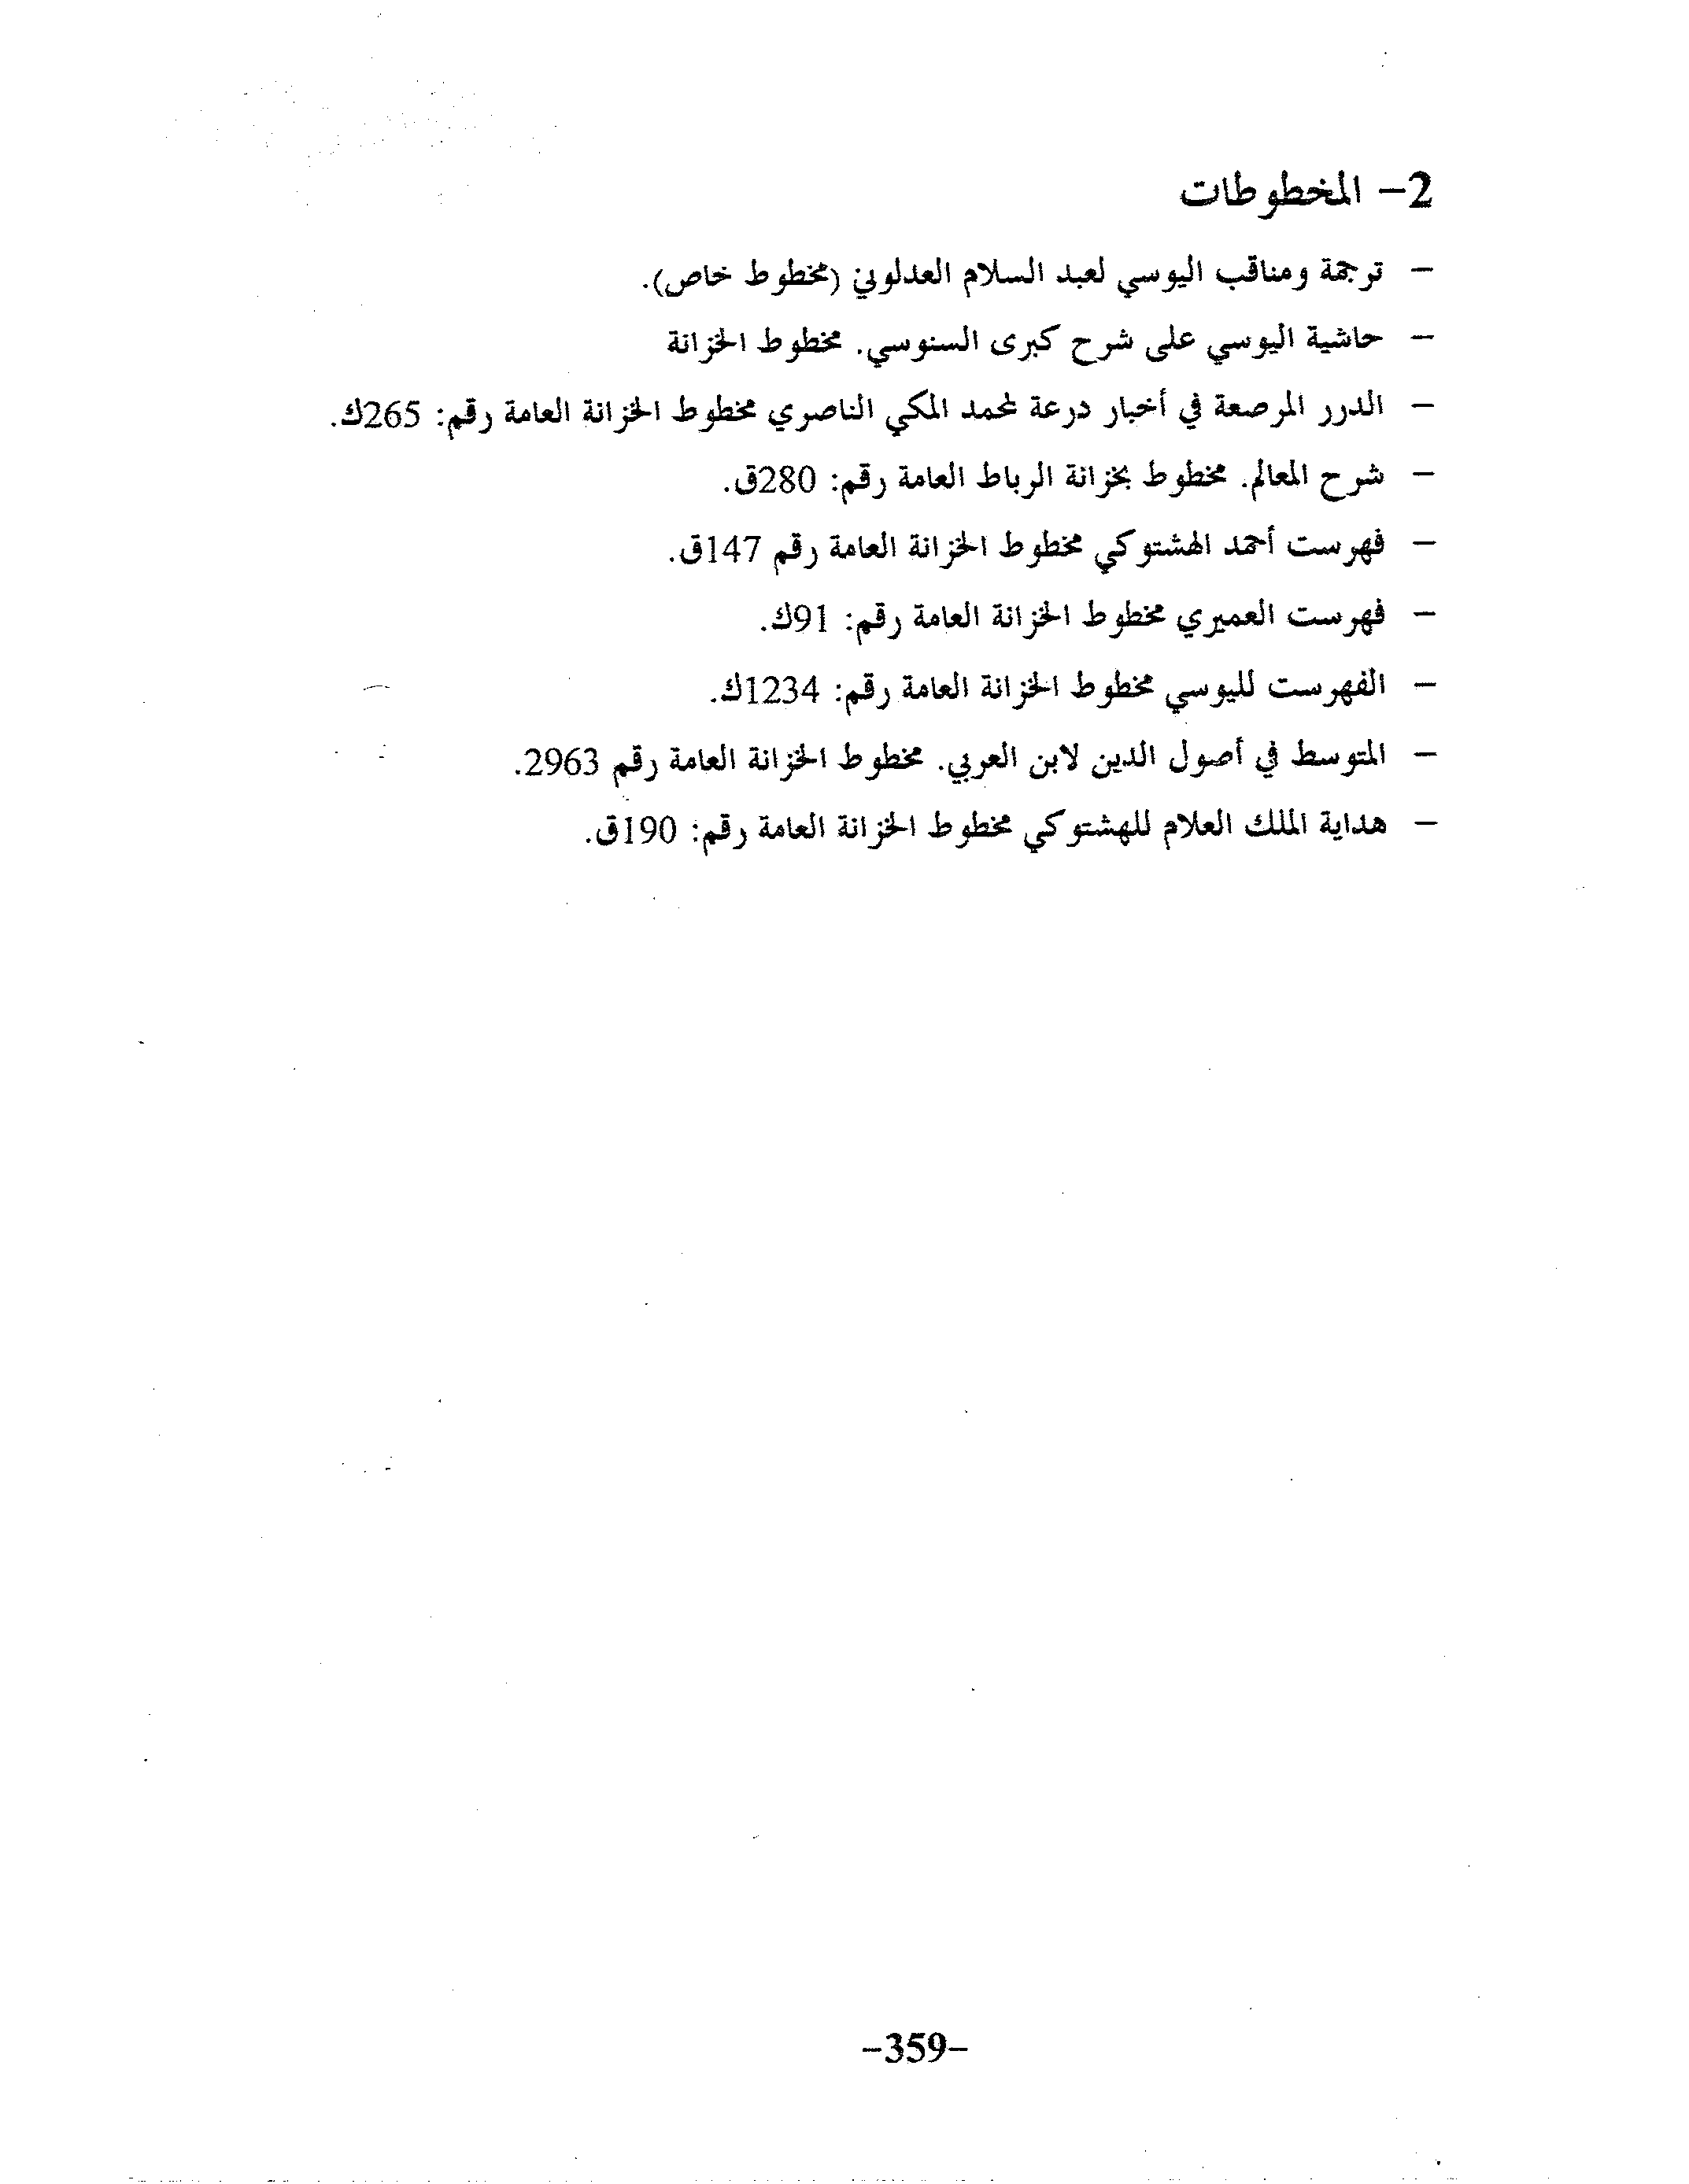 2- المخطوطات
- ترجمة ومناقب اليوسي لعبد السلام العدلوني (مخطوط خاص).
- حاشية اليوسي على شرح كبرى السنوسي. مخطوط الخزانة
- الدرر المرصعة في أخبار درعة لمحمد المكي الناصري مخطوط الخزانة العامة رقم: 265ك.
- شرح المعالم. مخطوط بخزانة الرباط العامة رقم: 280ق.
- فهرست أحمد الهشتوكي مخطوط الخزانة العامة رقم 147ق.
- فهرست العميري مخطوط الخزانة العامة رقم: 91ك.
- الفهرست لليوسي مخطوط الخزانة العامة رقم: 1234ك.
- المتوسط في أصول الدين لابن العربي. مخطوط الخزانة العامة رقم 2963.
- هداية الملك العلام للهشتوكي مخطوط الخزانة العامة رقم: 190ق.
-359-